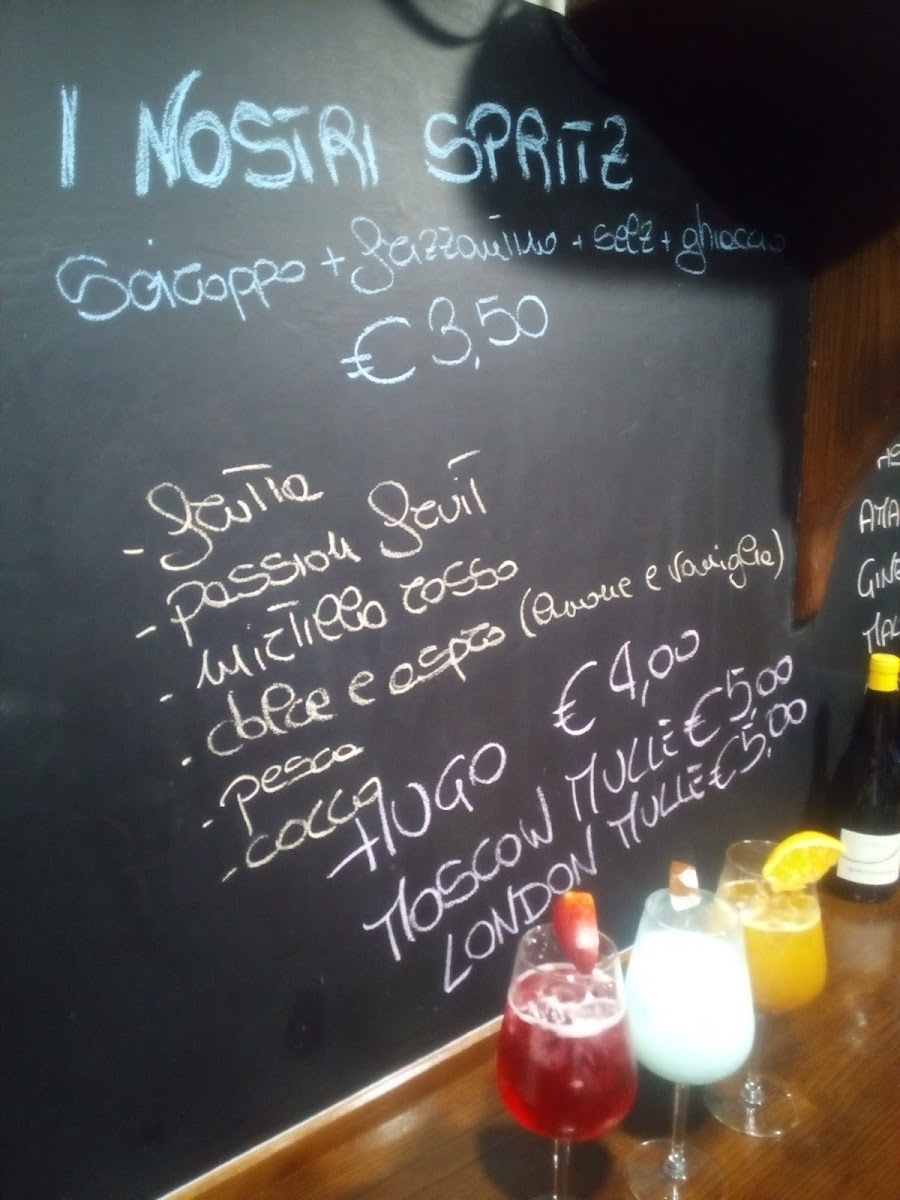 I NOSTRI SPRITZ
Sciroppo + frizzantino + selz + ghiaccio
€ 3,50
- frutta
- passion fruit
- mirtillo rosso
- dolce e aspro (limone e vaniglia)
- pesca
- cocco
HUGO € 4,00
MOSCOW MULLE € 5,00
LONDON MULLE € 5,00
AMA
GINE
MAL